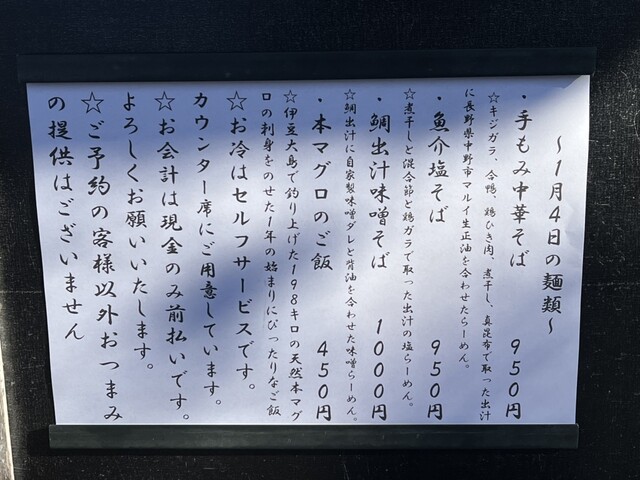 ～1月4日の麺類～
・手もみ中華そば　950円
☆キジガラ、合鴨、鶏ひき肉、煮干し、真昆布で取った出汁
に長野県中野市マルイ生正油を合わせたらーめん。
・魚介塩そば　950円
☆煮干しと混合節と鶏ガラで取った出汁の塩らーめん。
・鯛出汁味噌そば　1000円
☆鯛出汁に自家製味噌ダレと背油を合わせた味噌らーめん。
・本マグロのご飯　450円
☆伊豆大島で釣り上げた198キロの天然本マグ
ロの刺身をのせた1年の始まりにぴったりなご飯
☆お冷はセルフサービスです。
カウンター席にご用意しています。
☆お会計は現金のみ前払いです。
よろしくお願いいたします。
☆ご予約の客様以外おつまみ
の提供はございません